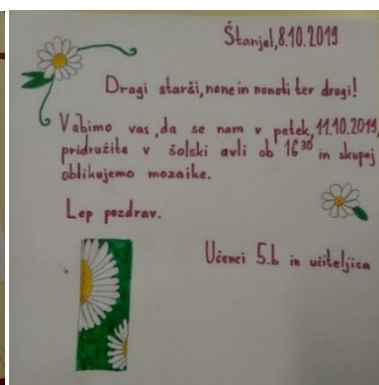 Štanjel, 8.10.2019
Dragi starši, none in nonoti ter drugi!
Vabimo vas, da se nam v petek, 11.10.2019,
pridružite v šolski avli ob 16³⁰ in skupaj
oblikujemo mozaike.
Lep pozdrav.
Učenci 5.b in učiteljica